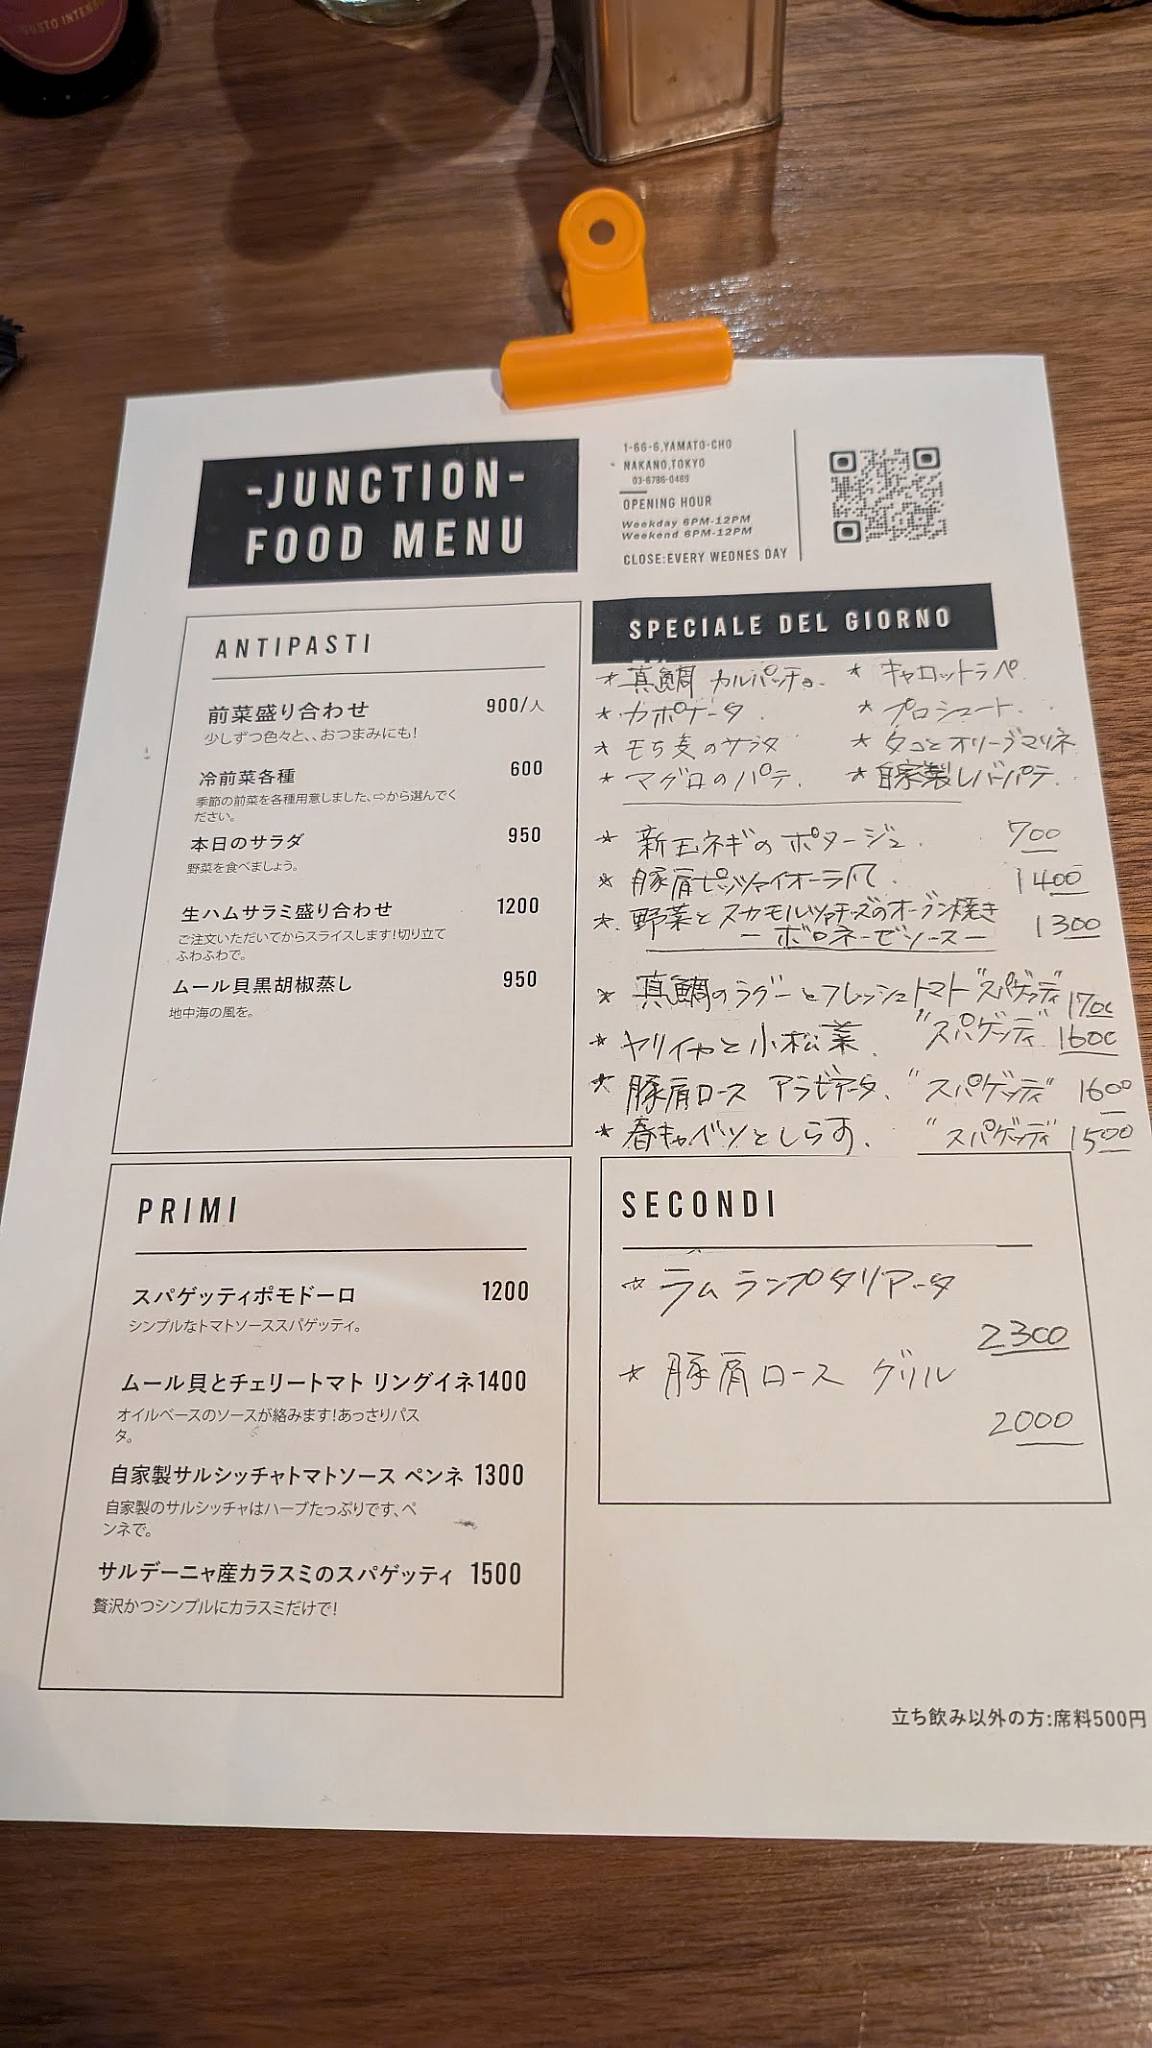 -JUNCTION-
FOOD MENU
1-66-6,YAMATO-CHO
NAKANO,TOKYO
03-6786-0469
OPENING HOUR
Weekday 6PM-12PM
Weekend 6PM-12PM
CLOSE:EVERY WEDNES DAY
ANTIPASTI
前菜盛り合わせ 900/人
少しずつ色々と、、おつまみにも!
冷前菜各種 600
季節の前菜を各種用意しました、⇨から選んでく
ださい。
本日のサラダ 950
野菜を食べましょう。
生ハムサラミ盛り合わせ 1200
ご注文いただいてからスライスします!切り立て
ふわふわで。
ムール貝黒胡椒蒸し 950
地中海の風を。
SPECIALE DEL GIORNO
*真鯛 カルパッチョ. *キャロットラペ
*カポナータ. *プロシュート.
*もち麦のサラダ *タコとオリーブマリネ
*マグロのパテ. *自家製レバーパテ.
*新玉ネギのポタージュ. 700
*豚肩ピッツァイオーラ風. 1400
*野菜とスカモルツァチーズのオーブン焼き
－ボロネーゼソース－ 1300
*真鯛のラグーとフレッシュトマト"スパゲッティ 1700
*ヤリイカと小松菜. "スパゲッティ" 1600
*豚肩ロース アラビアータ. "スパゲッティ" 1600
*春キャベツとしらす. "スパゲッティ" 1500
PRIMI
スパゲッティポモドーロ 1200
シンプルなトマトソーススパゲッティ。
ムール貝とチェリートマト リングイネ1400
オイルベースのソースが絡みます!あっさりパス
タ。
自家製サルシッチャトマトソース ペンネ 1300
自家製のサルシッチャはハーブたっぷりです、ペ
ンネで。
サルデーニャ産カラスミのスパゲッティ 1500
贅沢かつシンプルにカラスミだけで!
SECONDI
*ラム ランプ タリアータ
2300
*豚肩ロース グリル
2000
立ち飲み以外の方:席料500円